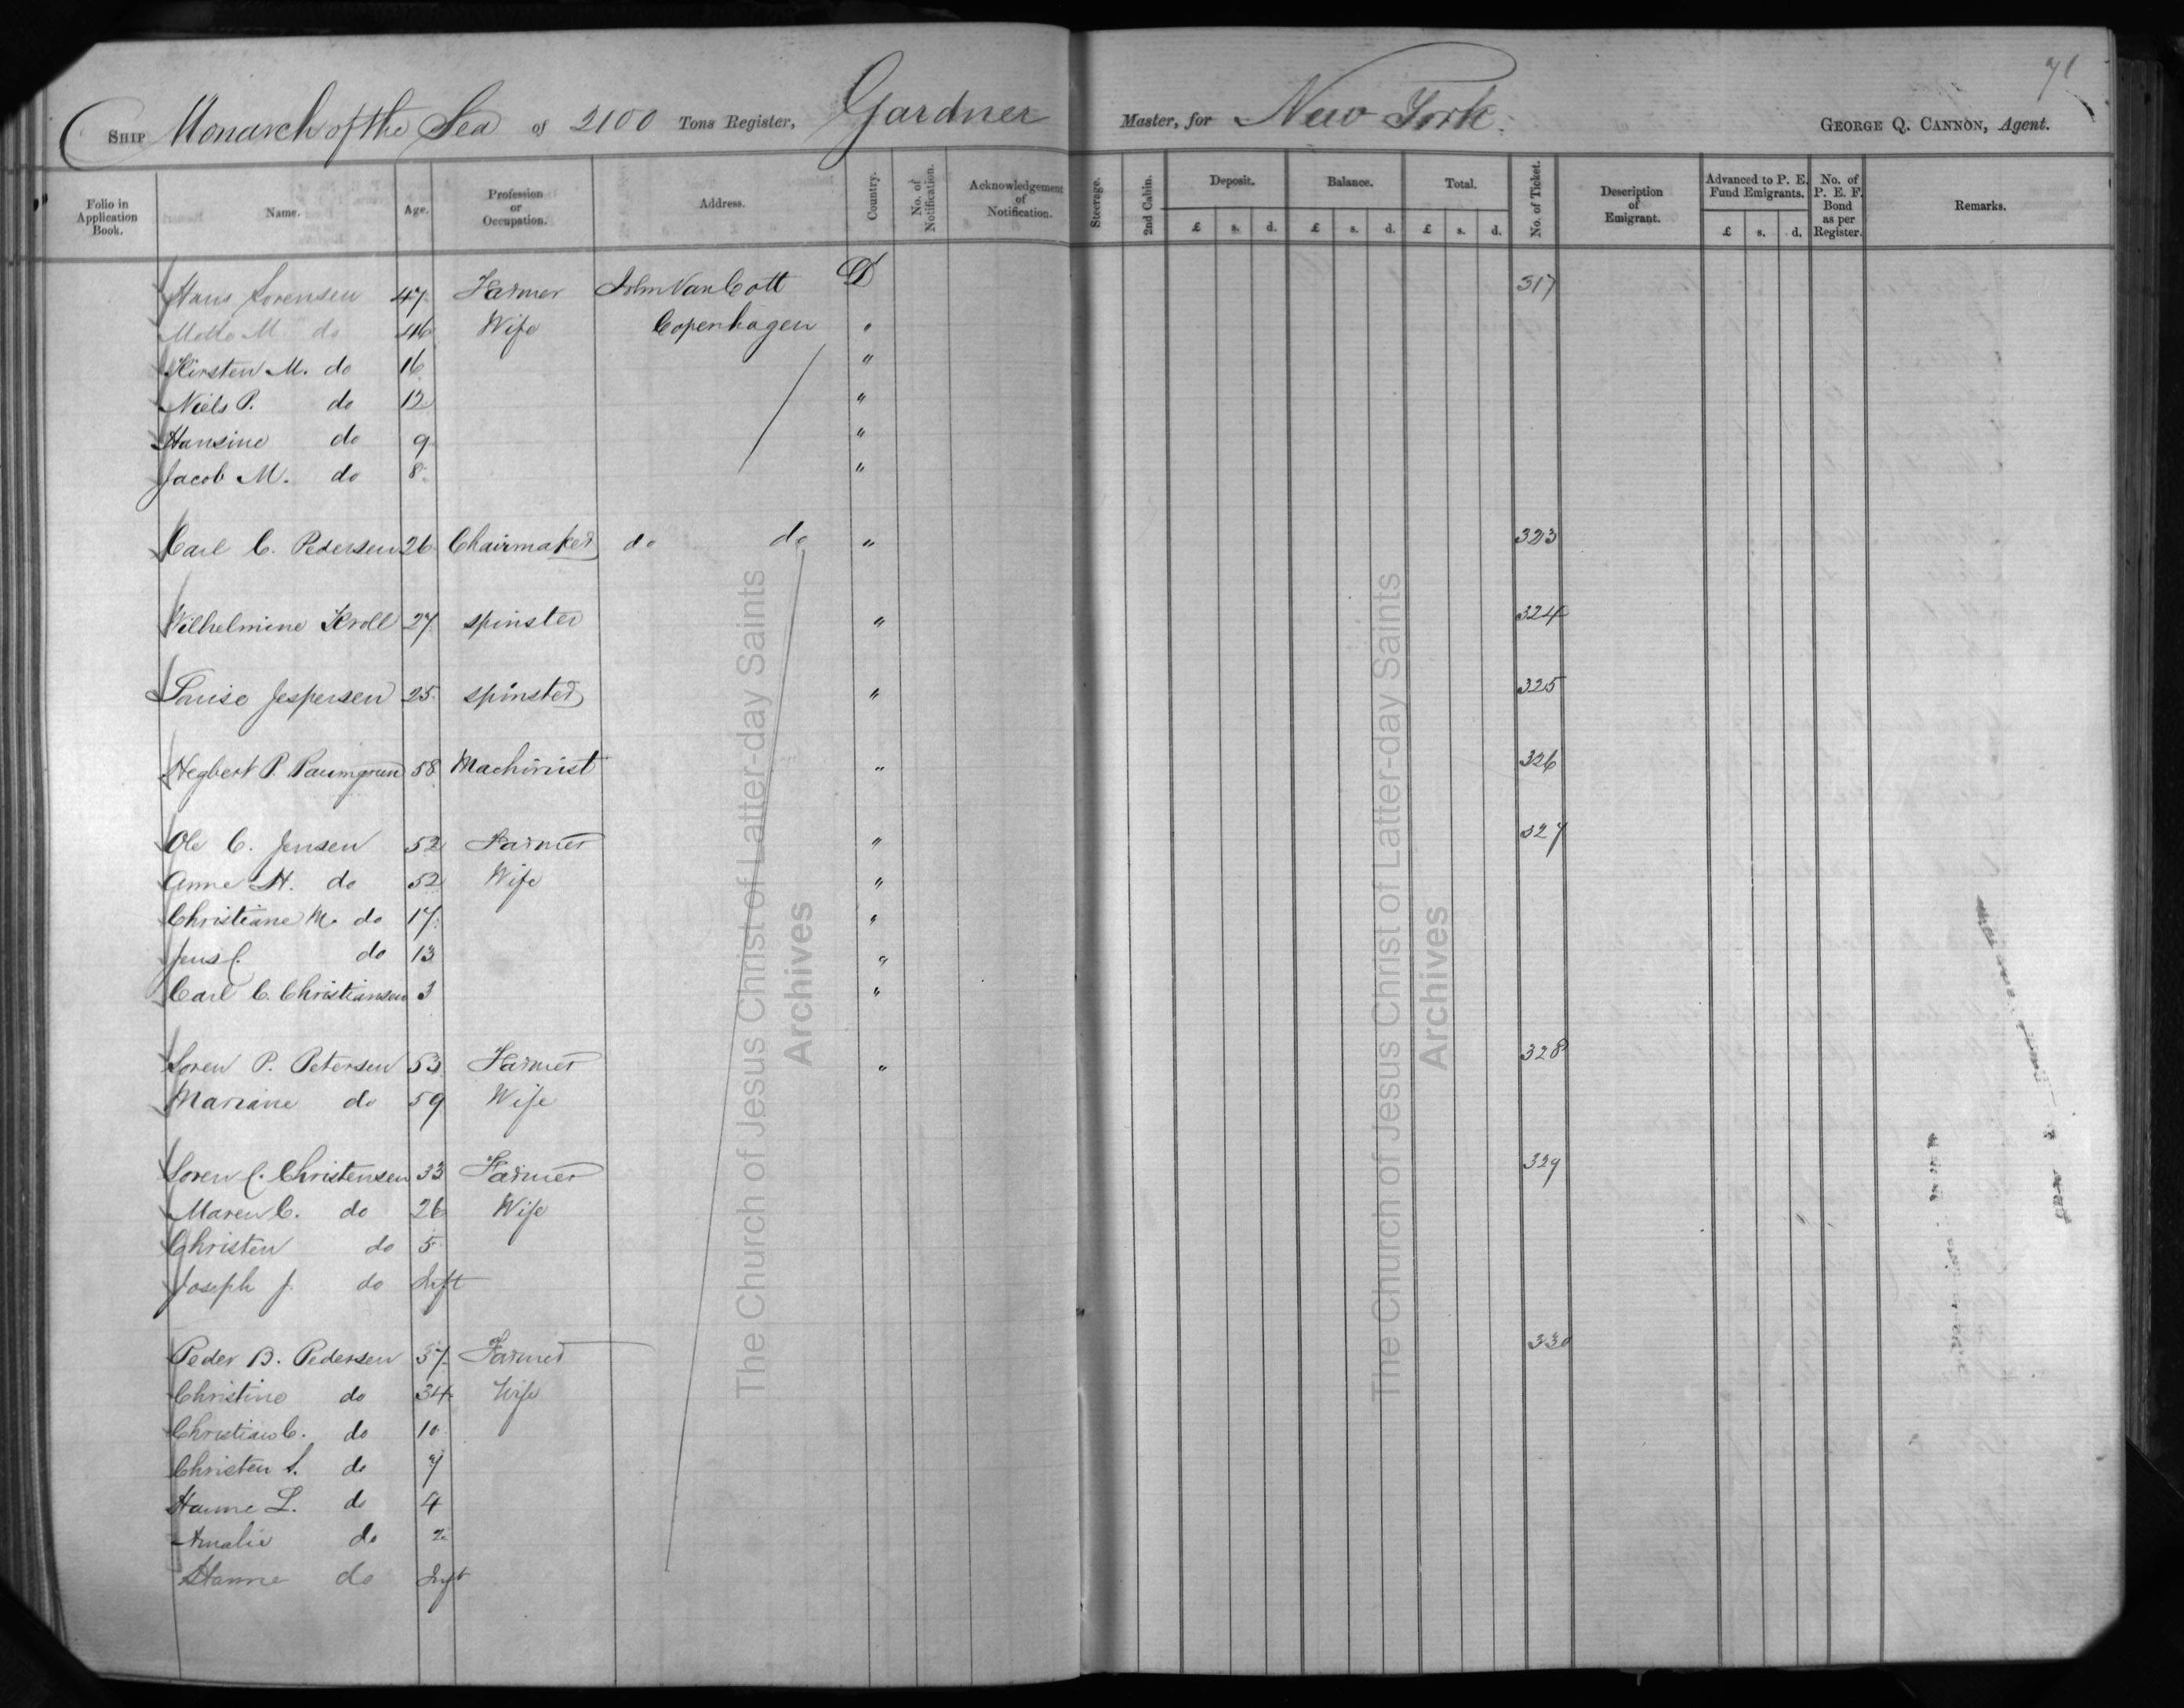 71
SHIP Monarch of the Sea of 2100 Tons Register, Gardner Master, for New York. GEORGE Q. CANNON, Agent.
Folio in Application Book. Name. Age. Profession or Occupation. Address. Country. No. of Notification. Acknowledgement of Notification. Steerage. 2nd Cabin. Deposit. £ s. d. Balance. £ s. d. Total. £ s. d. No. of Ticket. Description of Emigrant. Advanced to P. E. Fund Emigrants. £ s. d. No. of P. E. F. Bond as per Register. Remarks.
Hans Sorensen 47 Farmer John Van Cott D 317
M. do 46 Wife Copenhagen "
Kirsten M. do 16 "
Niels P. do 12 "
Hansine do 9 "
Jacob M. do 8 "
Carl C. Pedersen 26 Chairmaker do do " 323
Wilhelmine Kroll 27 spinster " 324
Louise Jespersen 25 spinster " 325
Hegbert P. Paumgren 58 Machinist " 326
Ole C. Jensen 52 Farmer " 327
Anne H. do 52 Wife "
Christiane M. do 17 "
Jens C. do 13 "
Carl C. Christiansen 3 "
Soren P. Petersen 53 Farmer " 328
Mariane do 59 Wife
Soren C. Christensen 33 Farmer 329
Maren C. do 26 Wife
Christen do 5
Joseph J. do Inft
Peder B. Pedersen 37 Farmer 330
Christine do 34 Wife
Christian C. do 10
Christen S. do 7
Hanne L. do 4
Amalie do 2
Hanne do Inft
The Church of Jesus Christ of Latter-day Saints
Archives
The Church of Jesus Christ of Latter-day Saints
Archives